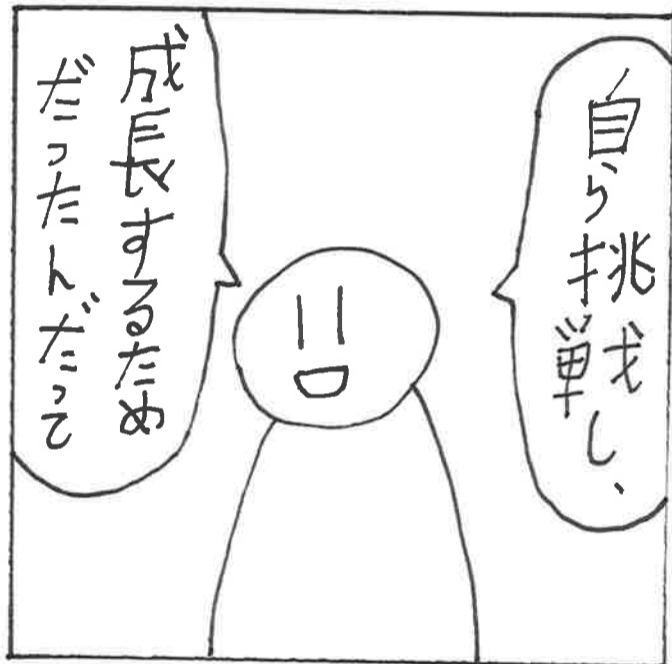 自ら挑戦し、
成長するため
だったんだって